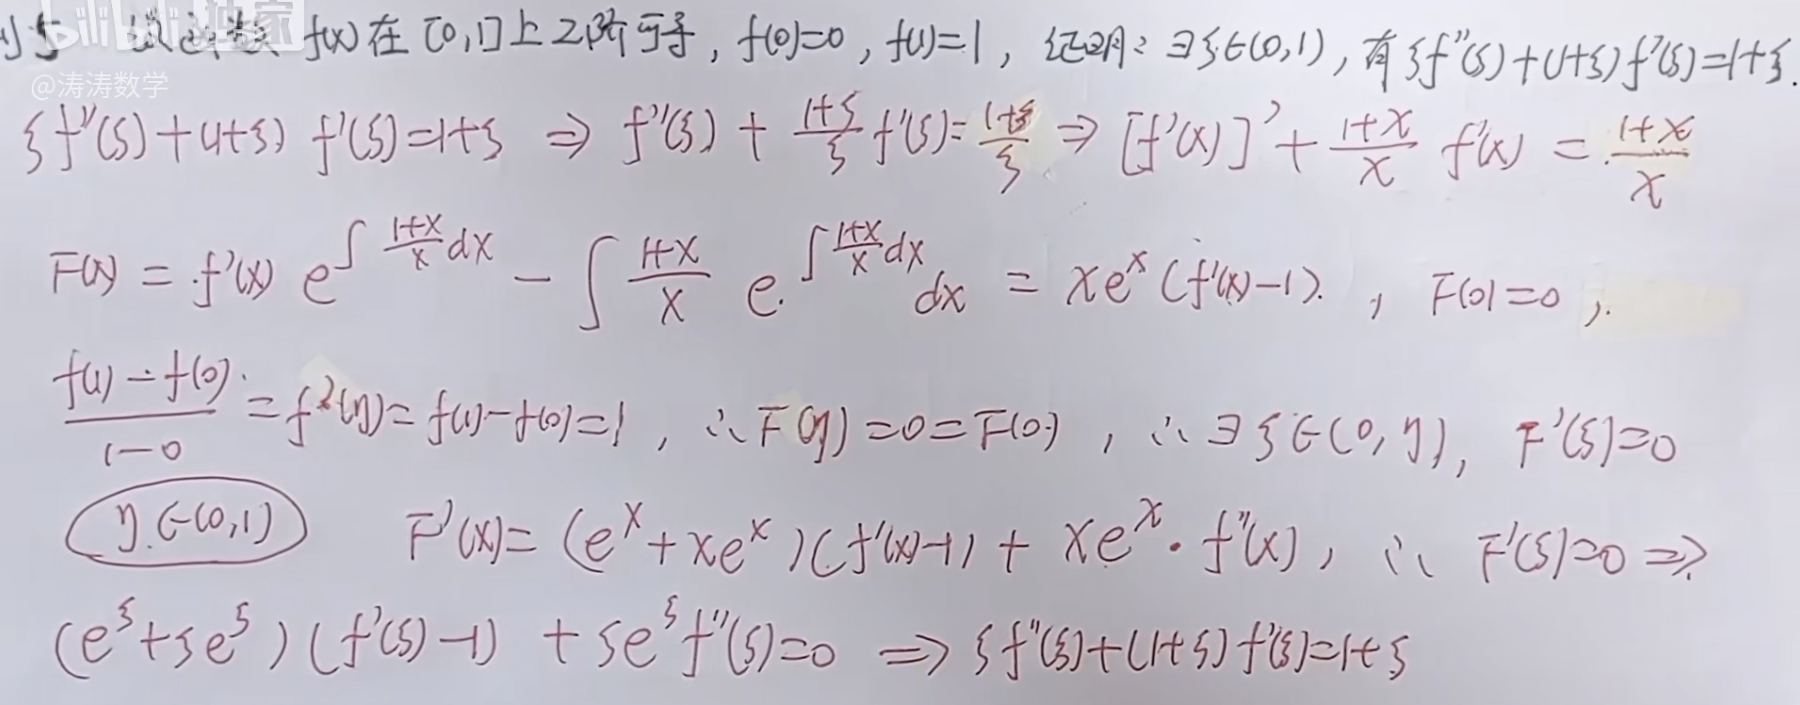 例5 设函数 f(x) 在 [0,1] 上 2阶可导, f(0)=0, f(1)=1, 证明: ∃ξ∈(0,1), 有 ξf''(ξ)+(1+ξ)f'(ξ)=1+ξ.
bilibili 独家
@涛涛数学
ξf''(ξ)+(1+ξ) f'(ξ)=1+ξ ⇒ f''(ξ) + \frac{1+ξ}{ξ} f'(ξ)=\frac{1+ξ}{ξ} ⇒ [f'(x)]' + \frac{1+x}{x} f'(x) = \frac{1+x}{x}
F(x) = f'(x) e^{∫\frac{1+x}{x}dx} - ∫\frac{1+x}{x} e^{∫\frac{1+x}{x}dx}dx = xe^x(f'(x)-1). , F(0)=0,
\frac{f(1)-f(0)}{1-0} = f'(η)=f(1)-f(0)=1, ∴F(η)=0=F(0), ∴∃ξ∈(0,η), F'(ξ)=0
η∈(0,1) F'(x)=(e^x+xe^x)(f'(x)-1)+xe^x·f''(x), ∴ F'(ξ)=0 ⇒
(e^ξ+ξe^ξ)(f'(ξ)-1)+ξe^ξf''(ξ)=0 ⇒ ξf''(ξ)+(1+ξ)f'(ξ)=1+ξ